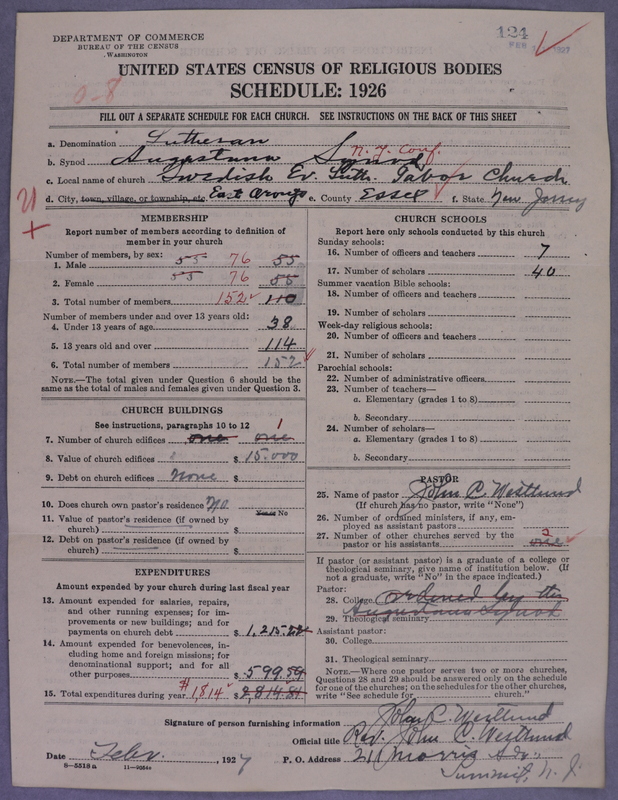 DEPARTMENT OF COMMERCE
BUREAU OF THE CENSUS
WASHINGTON
124
FEB 1927
UNITED STATES CENSUS OF RELIGIOUS BODIES
SCHEDULE: 1926
0-8
FILL OUT A SEPARATE SCHEDULE FOR EACH CHURCH. SEE INSTRUCTIONS ON THE BACK OF THIS SHEET
a. Denomination Lutheran
b. Synod Augustana Synod N.Y. Conf.
c. Local name of church Swedish Ev. Luth. Tabor Church
d. City, town, village, or township, etc. East Orange e. County Essex f. State New Jersey
MEMBERSHIP
Report number of members according to definition of member in your church
Number of members, by sex:
1. Male 55 76 55
2. Female 55 76 55
3. Total number of members 152 110
Number of members under and over 13 years old:
4. Under 13 years of age 38
5. 13 years old and over 114
6. Total number of members 152
NOTE.—The total given under Question 6 should be the same as the total of males and females given under Question 3.
CHURCH BUILDINGS
See instructions, paragraphs 10 to 12
7. Number of church edifices one one 1
8. Value of church edifices $ 15.000
9. Debt on church edifices None $
10. Does church own pastor's residence? No Yes or No
11. Value of pastor's residence (if owned by church) $
12. Debt on pastor's residence (if owned by church) $
EXPENDITURES
Amount expended by your church during last fiscal year
13. Amount expended for salaries, repairs, and other running expenses; for improvements or new buildings; and for payments on church debt $ 1,215.
14. Amount expended for benevolences, including home and foreign missions; for denominational support; and for all other purposes $ 599.59
15. Total expenditures during year $1,814 $ 2,814.81
CHURCH SCHOOLS
Report here only schools conducted by this church
Sunday schools:
16. Number of officers and teachers 7
17. Number of scholars 40
Summer vacation Bible schools:
18. Number of officers and teachers
19. Number of scholars
Week-day religious schools:
20. Number of officers and teachers
21. Number of scholars
Parochial schools:
22. Number of administrative officers
23. Number of teachers—
a. Elementary (grades 1 to 8)
b. Secondary
24. Number of scholars—
a. Elementary (grades 1 to 8)
b. Secondary
PASTOR
25. Name of pastor John C. Westlund
(If church has no pastor, write "None")
26. Number of ordained ministers, if any, employed as assistant pastors
27. Number of other churches served by the pastor or his assistants one 2
If pastor (or assistant pastor) is a graduate of a college or theological seminary, give name of institution below. (If not a graduate, write "No" in the space indicated.)
Pastor:
28. College ordained by the
29. Theological seminary Augustana Synod
Assistant pastor:
30. College
31. Theological seminary
NOTE.—Where one pastor serves two or more churches, Questions 28 and 29 should be answered only on the schedule for one of the churches; on the schedules for the other churches, write "See schedule for church."
Signature of person furnishing information John C. Westlund
Official title Rev. John C. Westlund
Date Febr. , 1927 P. O. Address 21 Morris Av.,
Summit, N. J.
8-5518a 11-9554